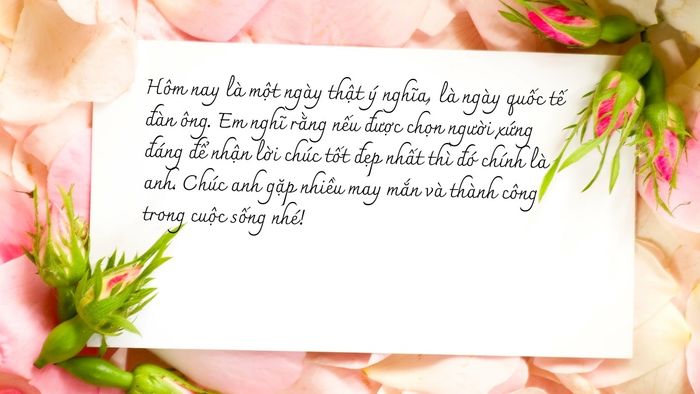 Hôm nay là một ngày thật ý nghĩa, là ngày quốc tế
đàn ông. Em nghĩ rằng nếu được chọn người xứng
đáng để nhận lời chúc tốt đẹp nhất thì đó chính là
anh. Chúc anh gặp nhiều may mắn và thành công
trong cuộc sống nhé!